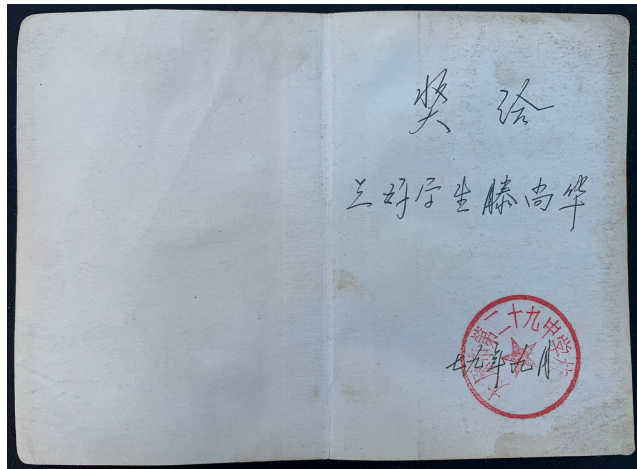 奖给
三好学生滕尚华
第二十九中学校
七九年九月